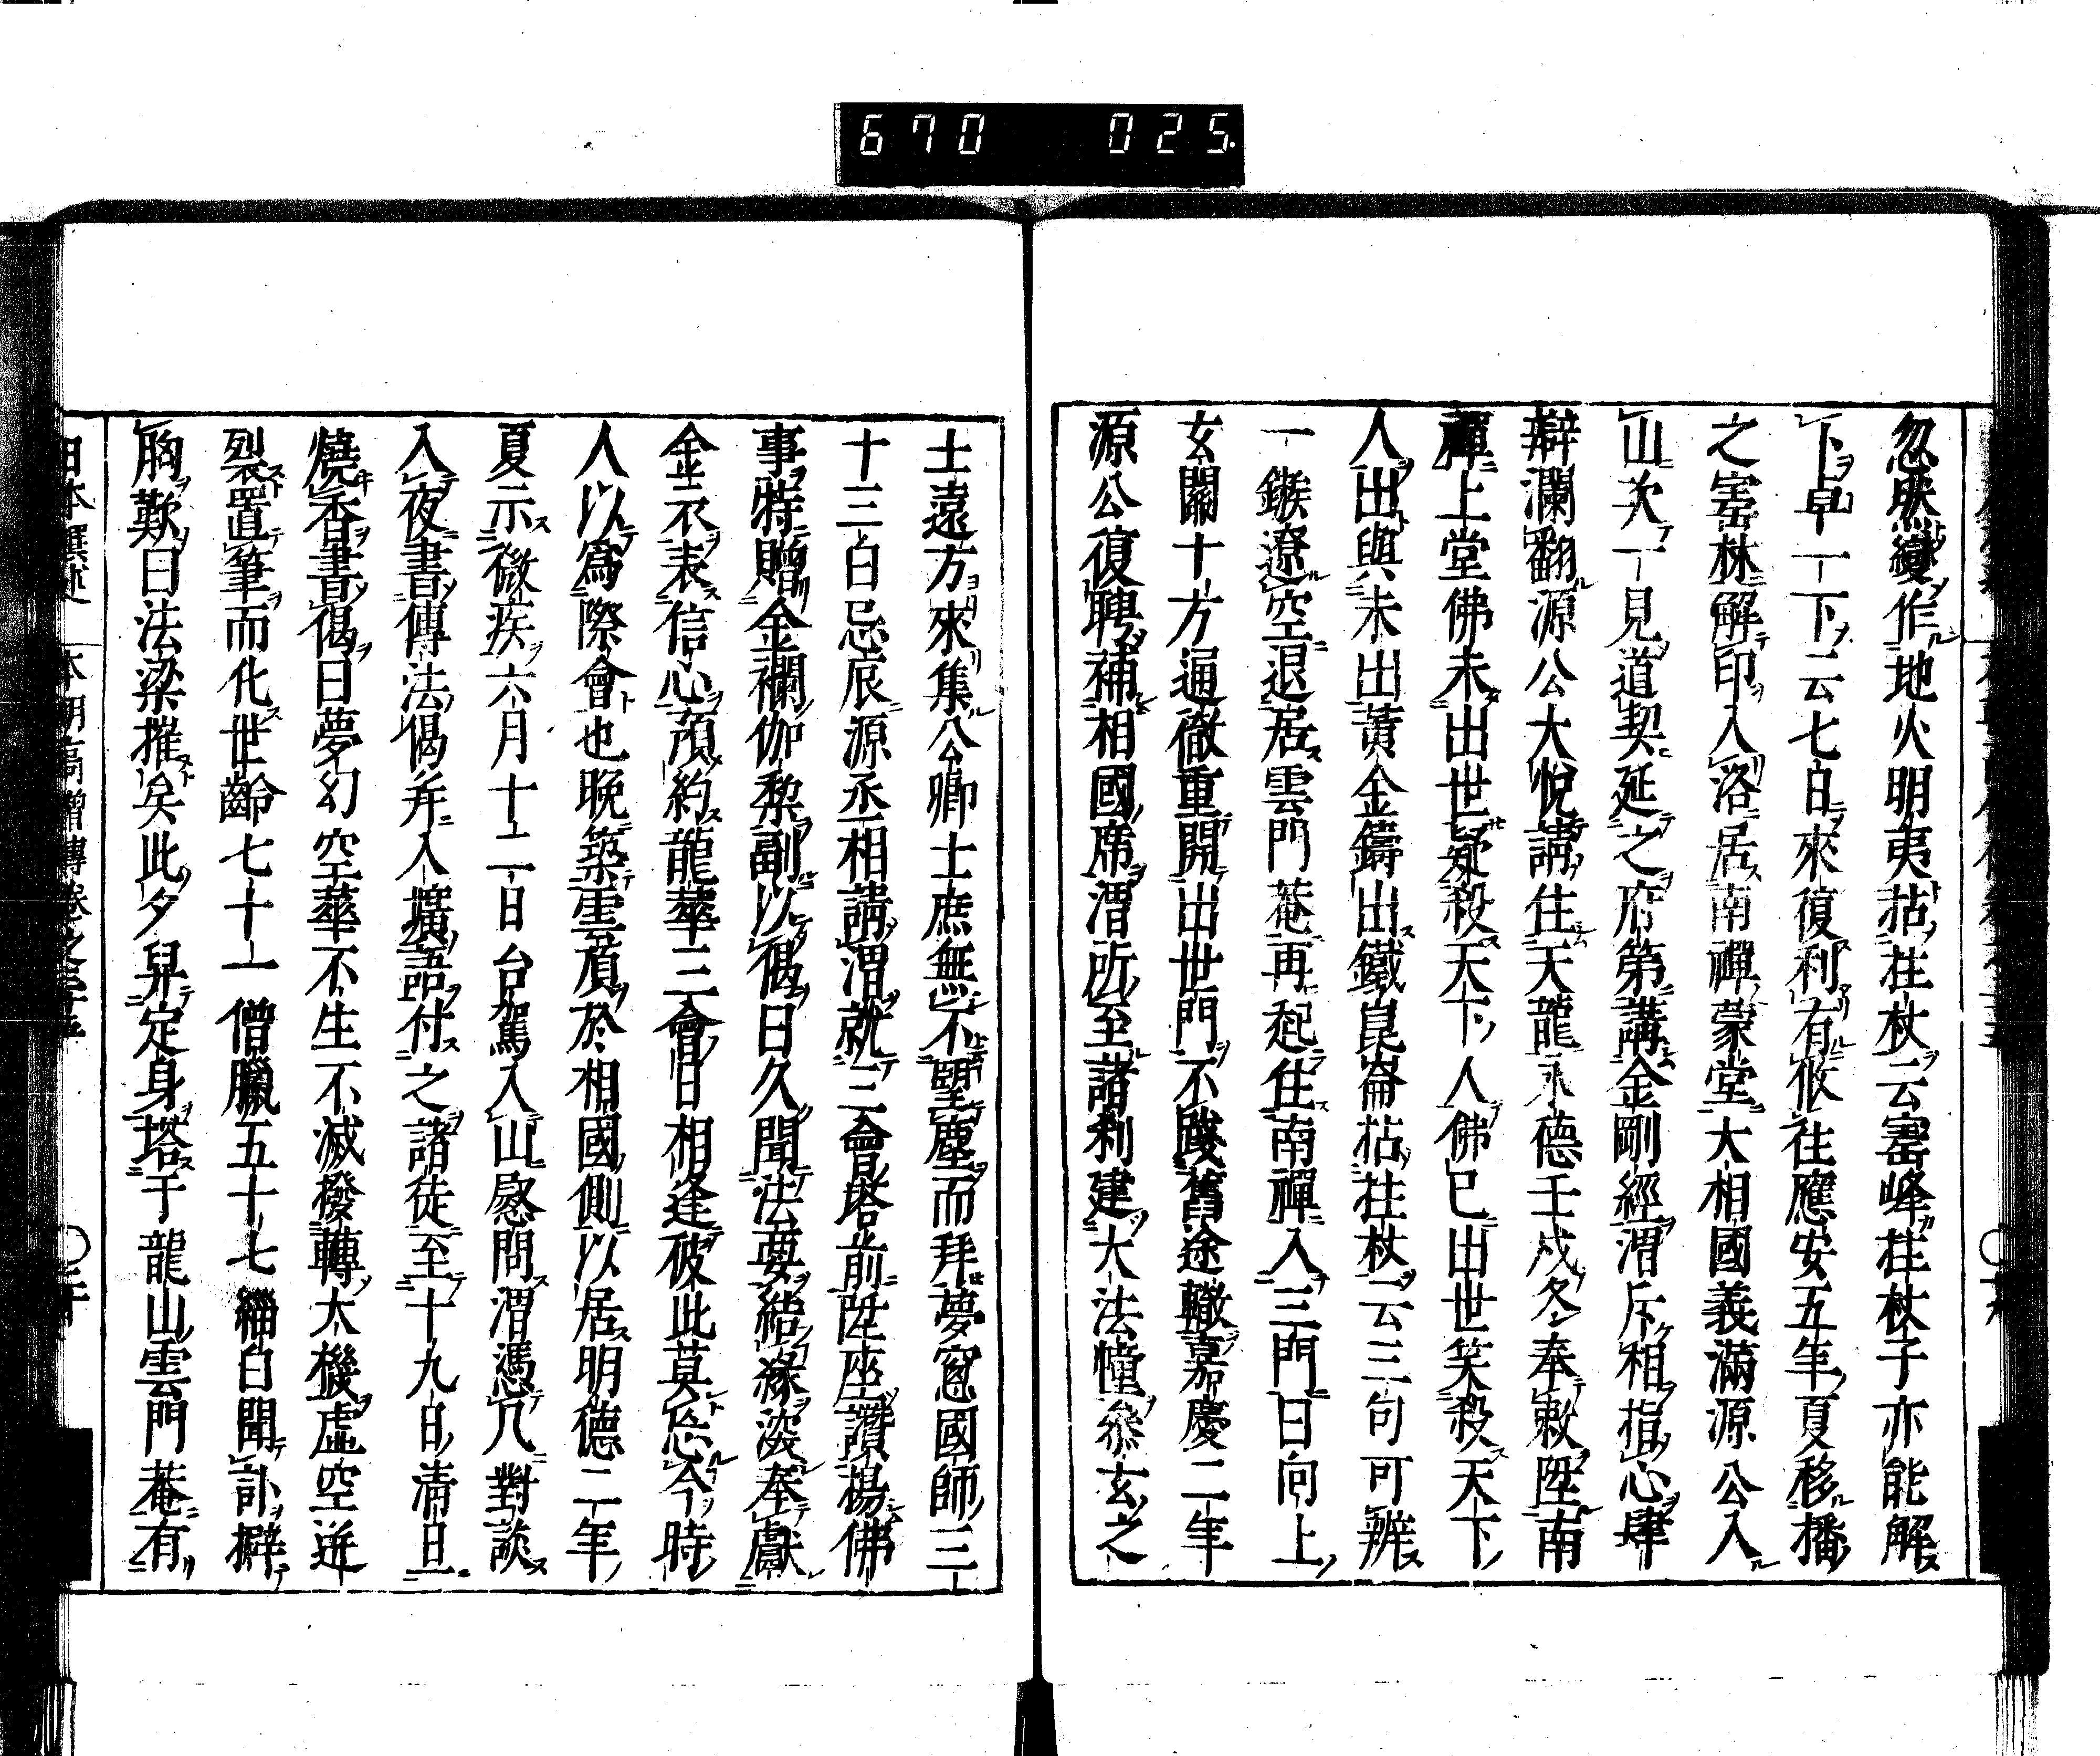 670 025
忽然變作地火明夷拈柱杖云寚峰柱杖子亦能解
卜卓一下云七日來復利有攸往應安五年夏移播
之寚林解印入洛居南禪蒙堂大相國義滿源公入
山次一見道契延之府第講金剛經渭斥相指心肆
辯瀾翻源公大悅請住天龍永德壬戌冬奉敕陞南
禪上堂佛未出世疑殺天下人佛已出世笑殺天下
人出與未出黃金鑄出鐵崑崙拈柱杖云三句可辨
一鏃遼空退居雲門菴再起住南禪入三門曰向上
玄關十方通徹重開出世門不踐舊途轍嘉慶二年
源公復聘補相國席渭所至諸刹建大法幢參玄之
士遠方來集公卿士庶無不望塵而拜夢窓國師三
十三白忌辰源丞相請渭就三會塔前陞座讚揚佛
事特贈金襴伽黎副以偈曰久聞法要結緣深奉獻
金衣表信心預約龍華三會日相逢彼此莫忘今時
人以爲際會也晚築雲頂於相國側以居明德二年
夏示微疾六月十二日台駕入山慰問渭憑几對談
入夜書傳法偈并入壙語付之諸徒至十九日清旦
燒香書偈曰夢幻空華不生不滅撥轉大機虛空迸
裂置筆而化世齡七十一僧臘五十七緇白聞訃擗
胸歎曰法梁摧矣此夕舁定身塔于龍山雲門菴有
日本撰述 本朝高僧傳卷之三十五 〇二十